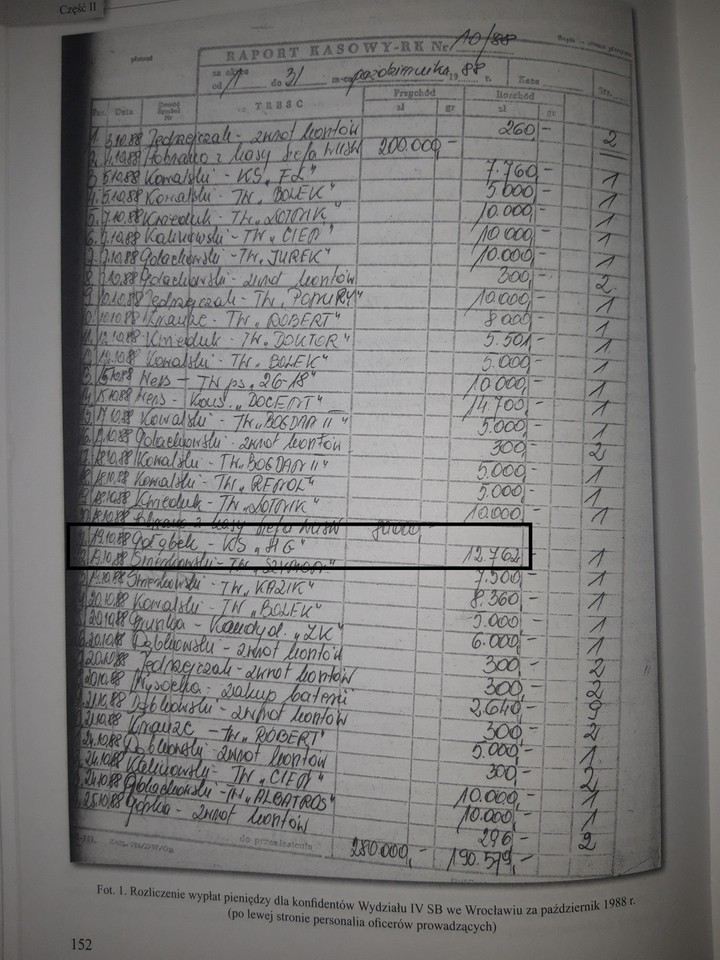 Część II
RAPORT KASOWY-RK Nr 10/88
za okres od 1 do 31 m-ca października 1988 r. Kasa Str.
Poz. Data Dowód Symbol Nr TREŚĆ Przychód Rozchód
zł gr zł gr
1. 3.10.88 Jędrzejczak - zwrot kosztów 260,- 2
2. 4.10.88 Pobrano z kasy szefa WUSW 200.000,-
3. 5.10.88 Kowalski - KS „FL" 7.760,- 1
4. 5.10.88 Kowalski - TW „BOLEK" 5.000,- 1
5. 7.10.88 Kmieduk - TW „LOTNIK" 10.000,- 1
6. 7.10.88 Kalinowski - TW „CIEŃ" 10.000,- 1
7. 7.10.88 Gołachowski - TW „JUREK" 10.000,- 1
8. 7.10.88 Gołachowski - zwrot kosztów 300,- 2
9. 10.10.88 Jędrzejczak - TW „PONURY" 10.000,- 1
10. 10.10.88 Krauze - TW „ROBERT" 8.000,- 1
11. 12.10.88 Kmieduk - TW „DOKTOR" 5.501,- 1
12. 12.10.88 Kowalski - TW „BOLEK" 5.000,- 1
13. 15.10.88 Hens - TW ps. „26-18" 10.000,- 1
14. 15.10.88 Hens - Kons. „DOCENT" 14.700,- 1
15. 17.10.88 Kowalski - TW „BOGDAN II" 5.000,- 1
17.10.88 Gołachowski - zwrot kosztów 300,- 2
18.10.88 Kowalski - TW „BOGDAN II" 5.000,- 1
18.10.88 Kowalski - TW „RENOL" 5.000,- 1
18.10.88 Kmieduk - TW „LOTNIK" 10.000,- 1
18.10.88 Pobrano z kasy szefa WUSW
19.10.88 Gołąbek - KS „HG" 12.762,- 1
19.10.88 TW 7.500,- 1
19.10.88 TW „KAZIK" 8.360,- 1
20.10.88 Kowalski - TW „BOLEK" 5.000,- 1
20.10.88 Kandyd. „ZK" 6.000,- 1
20.10.88 Dąbkowski - zwrot kosztów 300,- 2
20.10.88 Jędrzejczak - zwrot kosztów 300,- 2
20.10.88 Wysocka - zakup baterii 2.640,- 9
21.10.88 Dąbkowski - zwrot kosztów 300,- 2
21.10.88 Krauze - TW „ROBERT" 5.000,- 1
24.10.88 Dąbkowski - zwrot kosztów 300,- 2
24.10.88 Kalinowski - TW „CIEŃ" 10.000,- 1
24.10.88 Gołachowski - TW „ALBATROS" 10.000,- 1
25.10.88 - zwrot kosztów 296,- 2
do przeniesienia 280.000,- 190.579,-
Fot. 1. Rozliczenie wypłat pieniędzy dla konfidentów Wydziału IV SB we Wrocławiu za październik 1988 r.
(po lewej stronie personalia oficerów prowadzących)
152